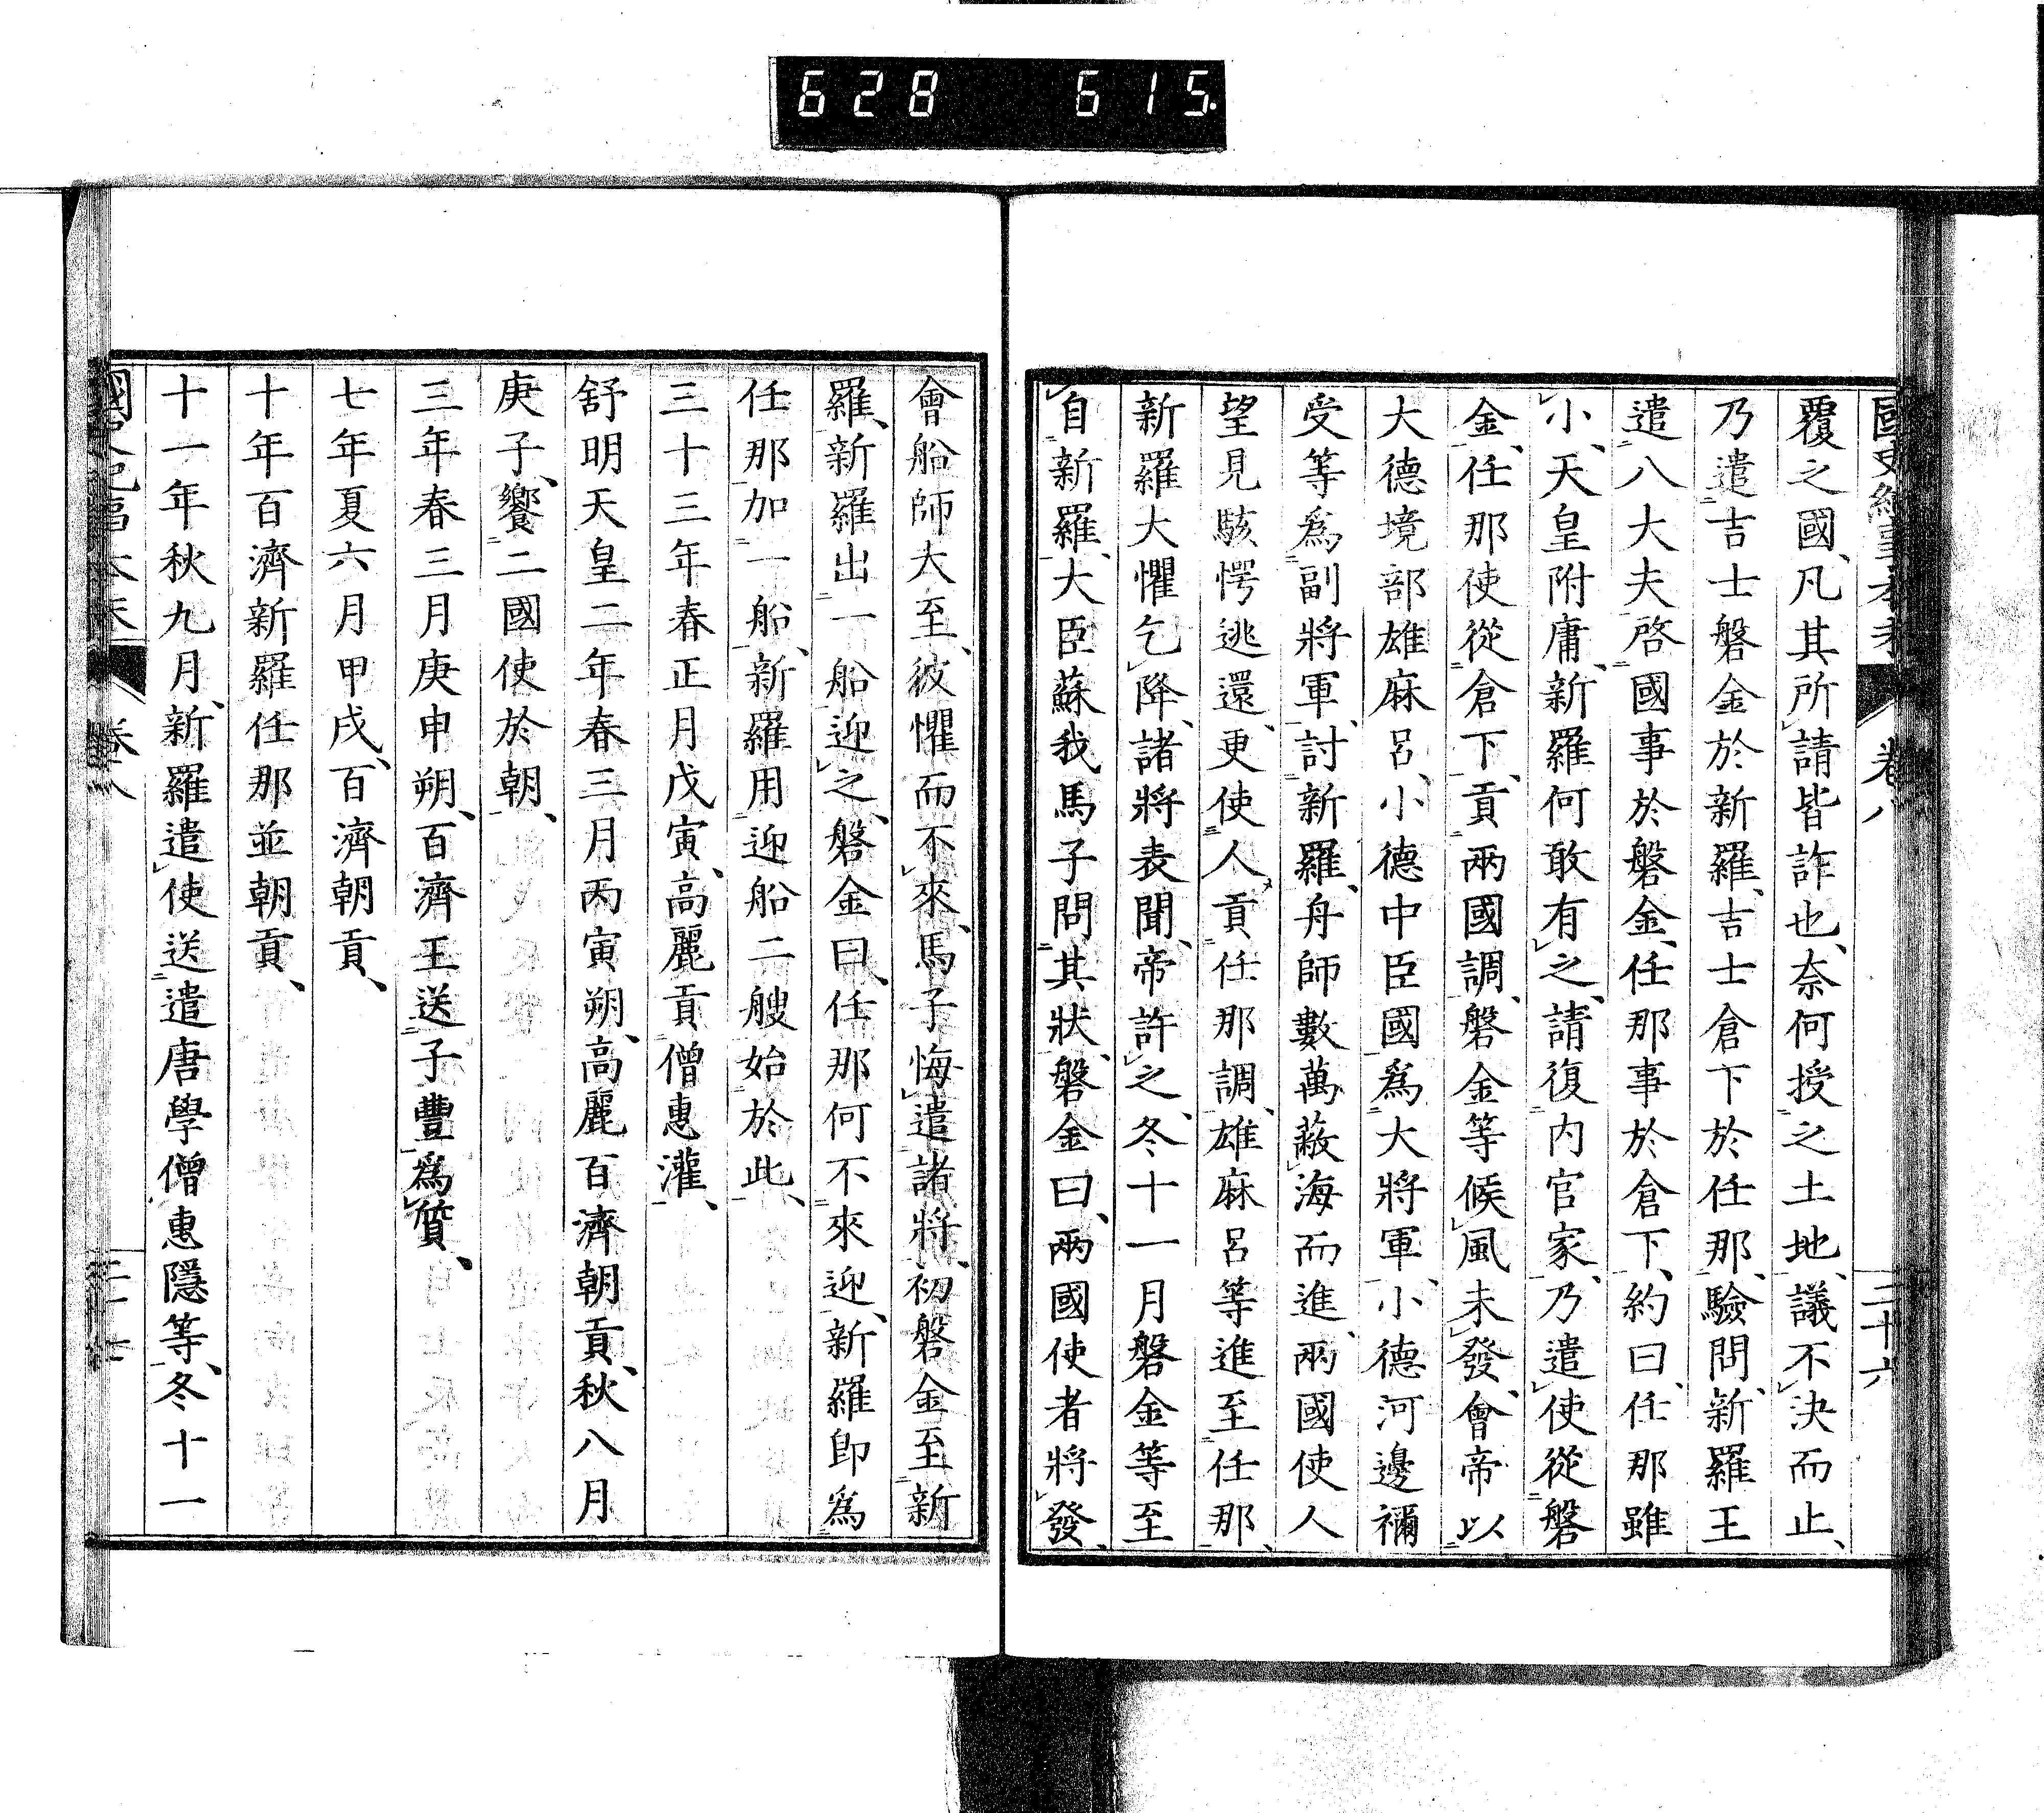 628 615.
覆之國、凡其所請皆詐也、奈何授之土地、議不決而止、
乃遣吉士磐金於新羅、吉士倉下於任那、驗問、新羅王
遣八大夫啓國事於磐金、任那事於倉下、約曰、任那雖
小、天皇附庸、新羅何敢有之、請復内官家、乃遣使從磐
金、任那使從倉下、貢兩國調、磐金等候風未發、會帝以
大德境部雄麻呂、小德中臣國爲大將軍、小德河邊禰
受等爲副將軍、討新羅、舟師數萬蔽海而進、兩國使人
望見駭愕逃還、更使人貢任那調、雄麻呂等進至任那、
新羅大懼乞降、諸將表聞、帝許之、冬十一月磐金等至
自新羅、大臣蘇我馬子問其狀、磐金曰、兩國使者將發、
會船師大至、彼懼而不來、馬子悔遣諸將、初磐金至新
羅、新羅出一船迎之、磐金曰、任那何不來迎、新羅卽爲
任那加一船、新羅用迎船二艘始於此、
三十三年春正月戊寅、高麗貢僧惠灌、
舒明天皇二年春三月丙寅朔、高麗百濟朝貢、秋八月
庚子、饗二國使於朝、
三年春三月庚申朔、百濟王送子豐爲質、
七年夏六月甲戌、百濟朝貢、
十年百濟新羅任那並朝貢、
十一年秋九月、新羅遣使送遣唐學僧惠隱等、冬十一
卷八
二十六